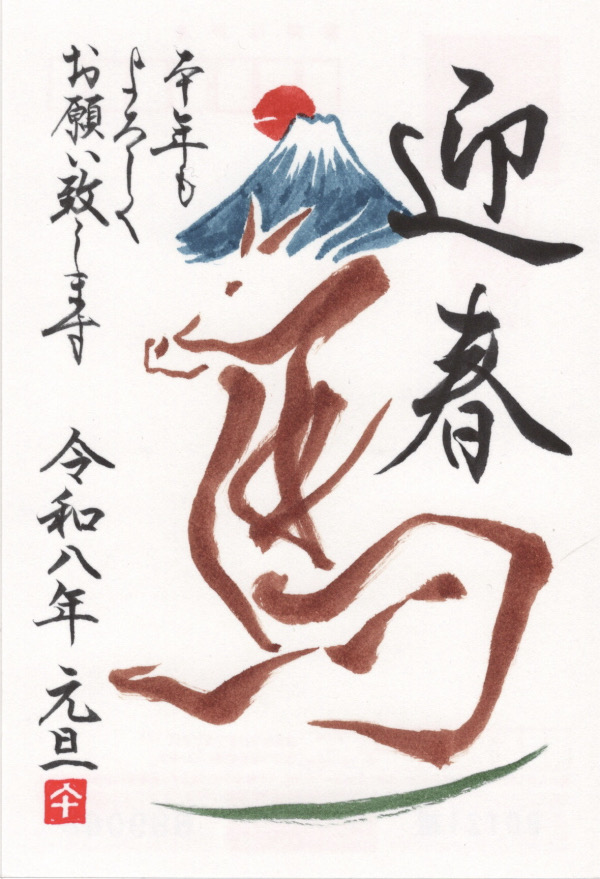 迎春
本年も
よろしく
お願い致します
令和八年 元旦